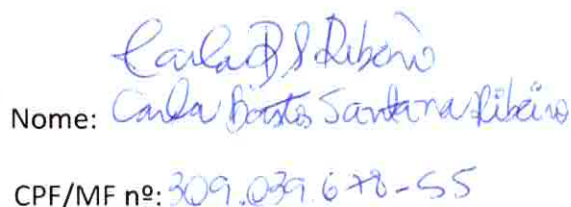 Carla B S Ribeiro
Nome: Carla Bastos Santana Ribeiro
CPF/MF nº: 309.039.678-55